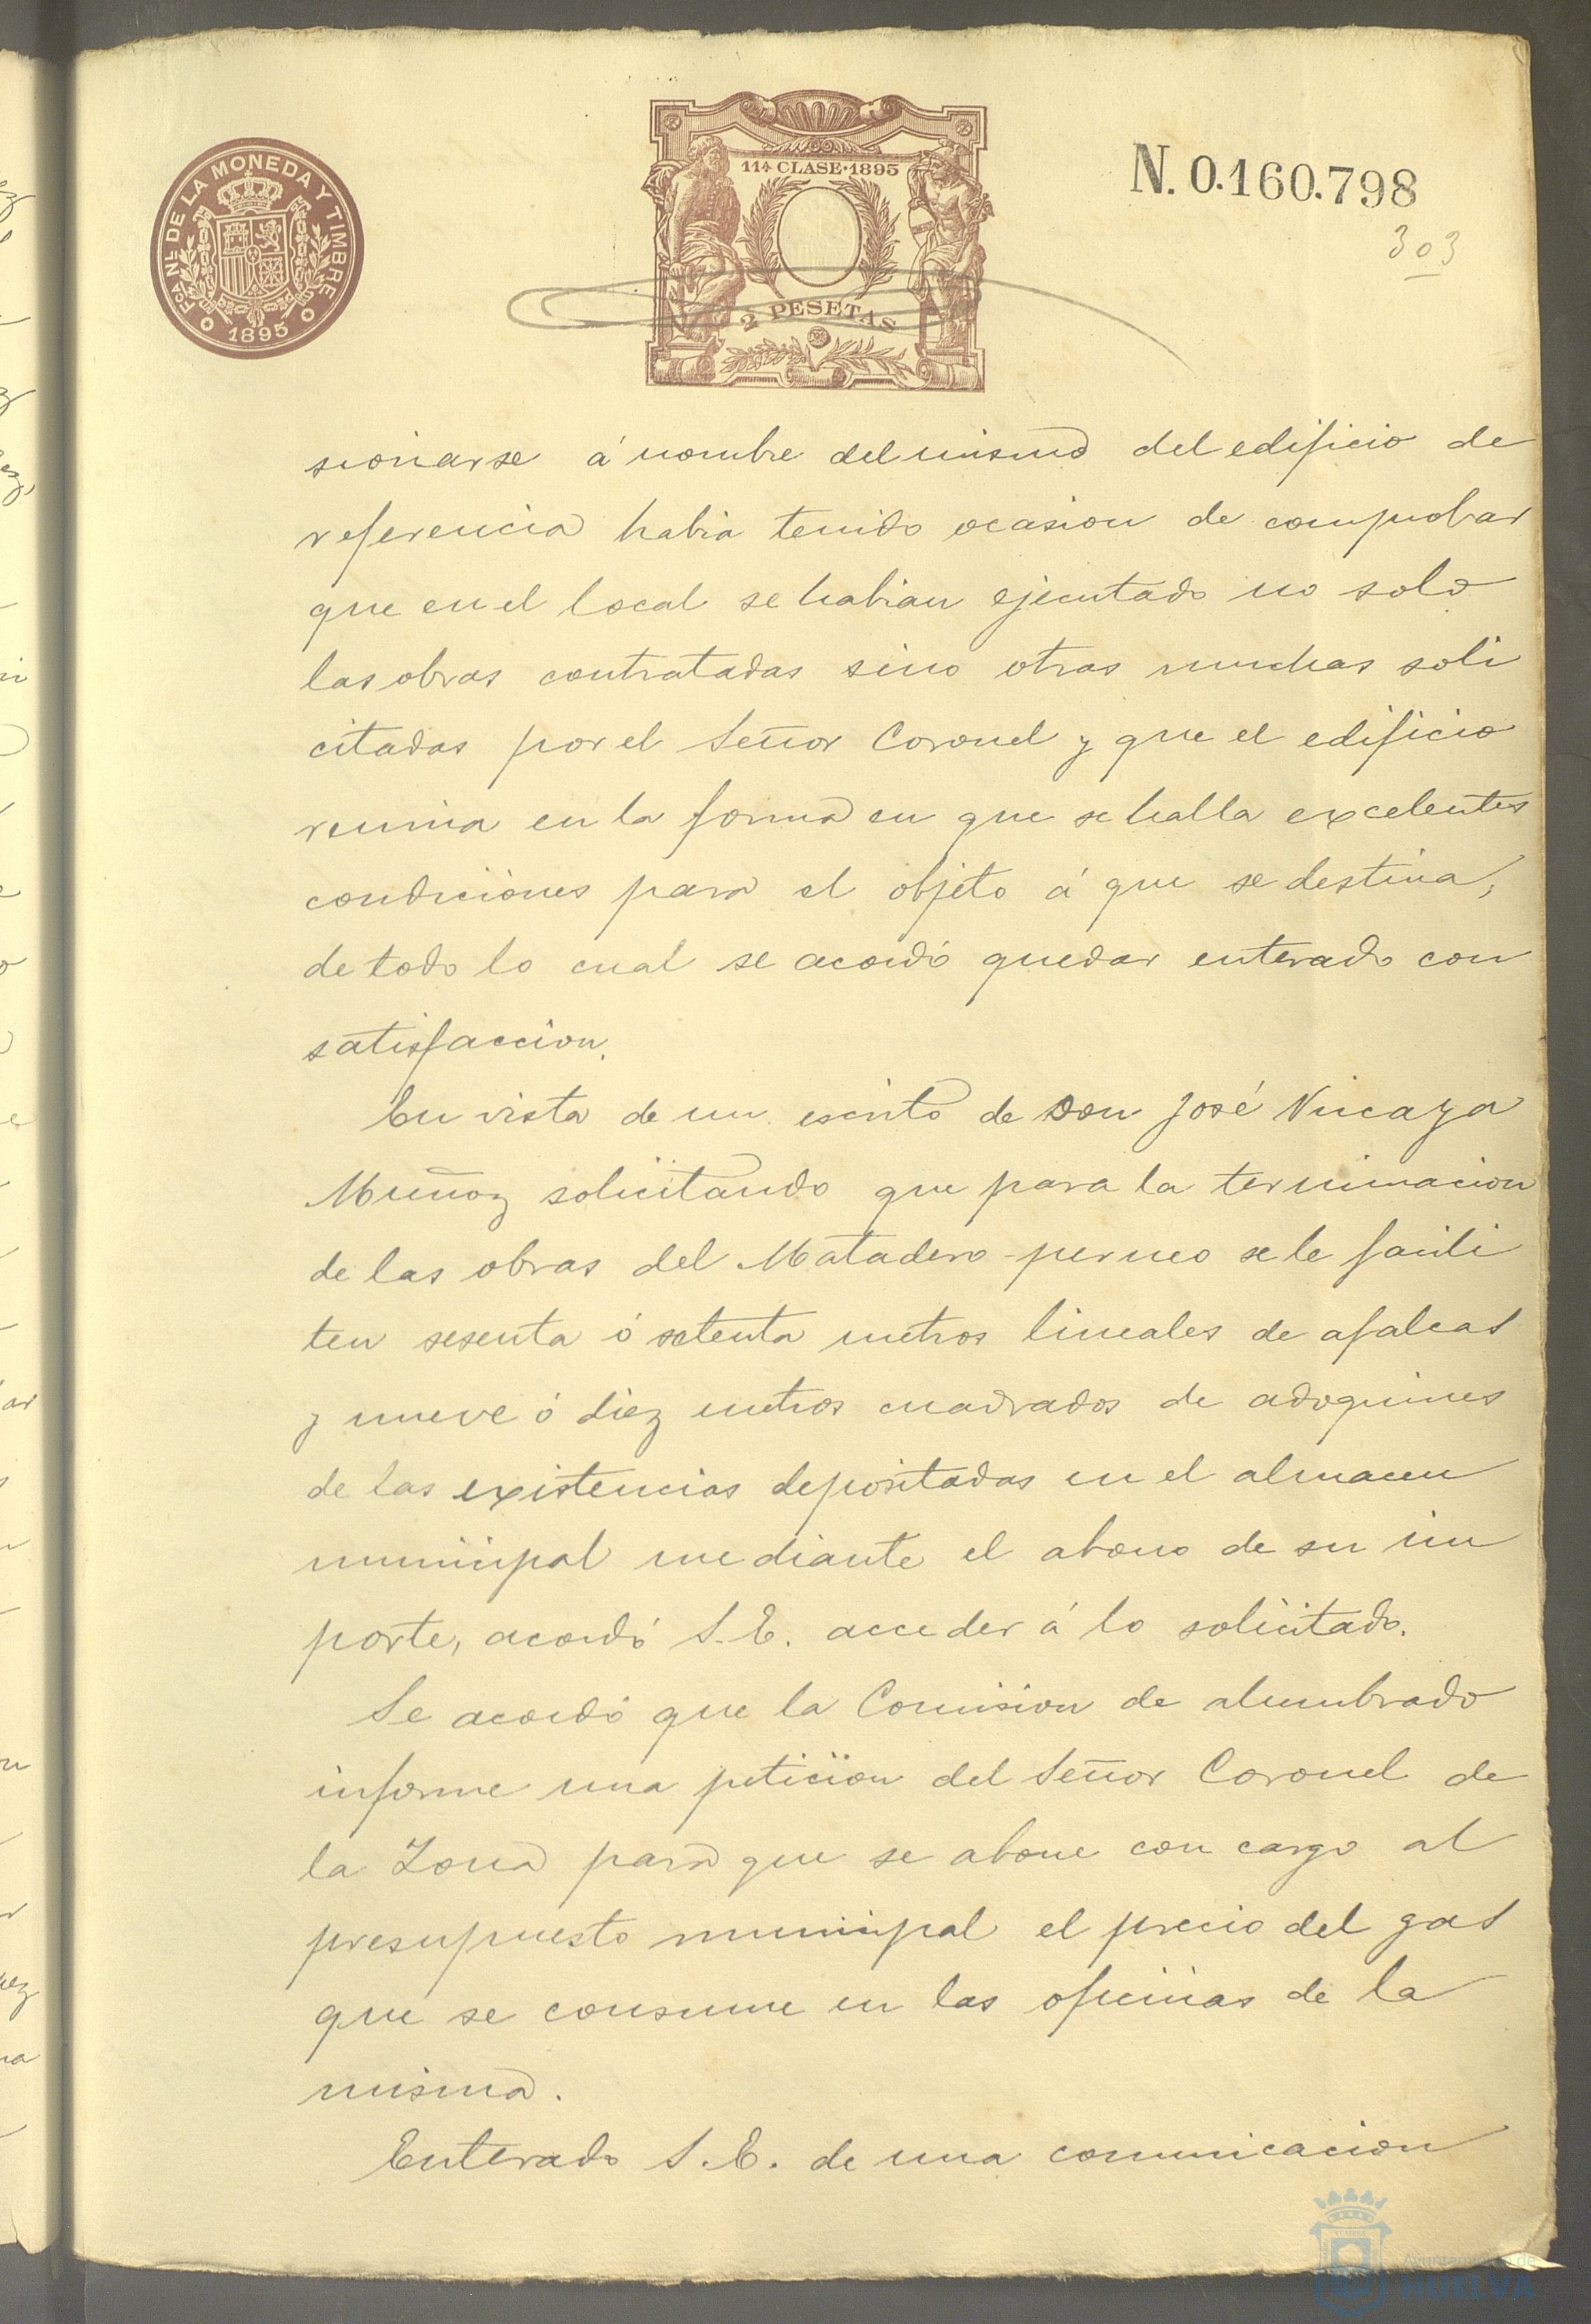 FCA NL. DE LA MONEDA Y TIMBRE
1895
11ª CLASE·1895
2 PESETAS
N. 0.160.798
303
sionarse á nombre del mismo del edificio de
referencia habia tenido ocasion de comprobar
que en el local se habian ejecutado no solo
las obras contratadas sino otras muchas soli
citadas por el Señor Coronel y que el edificio
reunia en la forma en que se halla excelentes
condiciones para el objeto á que se destina,
de todo lo cual se acordó quedar enterado con
satisfaccion.
En vista de un escrito de Don José Vizcaya
Muñoz solicitando que para la terminacion
de las obras del Matadero perneo se le facili
ten sesenta ó setenta metros lineales de
y nueve ó diez metros cuadrados de adoquines
de las existencias depositadas en el almacen
municipal mediante el abono de su im
porte, acordó S.E. acceder á lo solicitado.
Se acordó que la Comision de alumbrado
informe una peticion del Señor Coronel de
la Zona para que se abone con cargo al
presupuesto municipal el precio del gas
que se consume en las oficinas de la
misma.
Enterado S.E. de una comunicacion
Ayuntamiento de
HUELVA